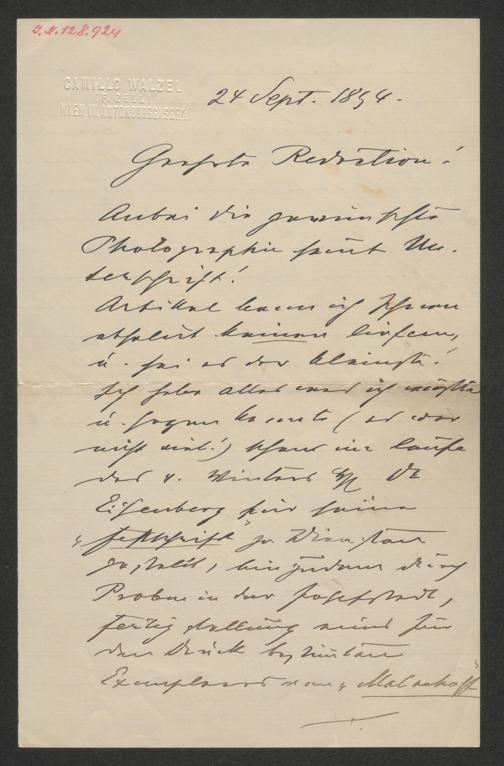 I.N. 128.924
CAMILLO WALZEL
(F. ZELL)
WIEN, IV.
24 Sept. 1894.
Geehrte Redaction!
Anbei die gewünschte
Photographie sammt Un-
terschrift!
Artikel kann ich Ihnen
absolut keinen liefern,
u. sei es der kleinste!
Ich habe alles was ich wußte
u. sagen konnte (es war
nicht viel!) schon im Laufe
des v. Winters H. Dr
Eisenberg für seine
"Festschrift" zu Diensten
gestellt, bin zudem durch
Proben in der Josefstadt,
Fertigstellung eines für
den Druck bestimten
Exemplares von "Malachoff"